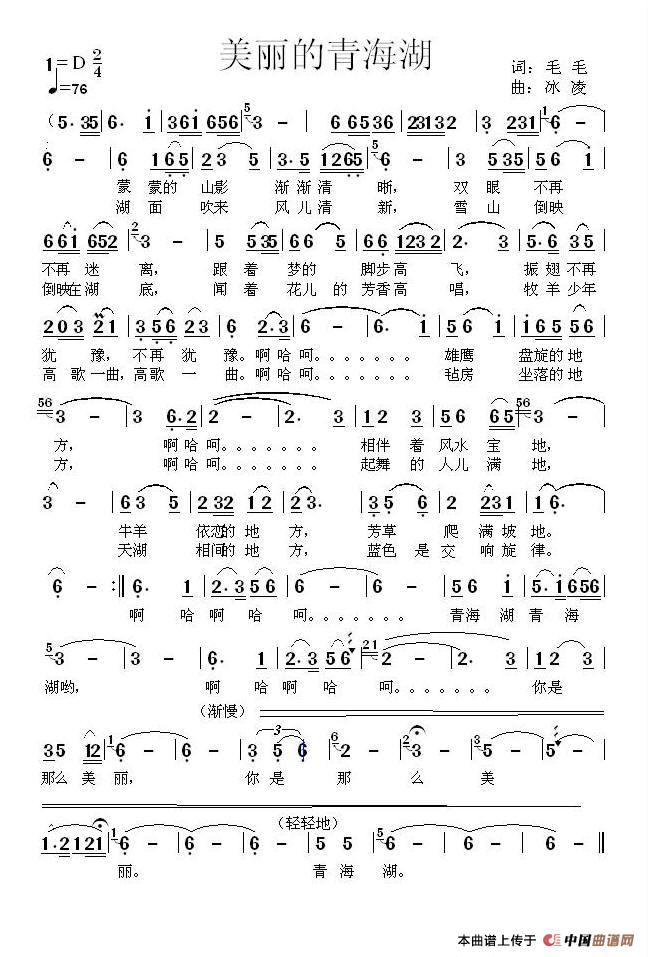 美丽的青海湖
1=D 2/4
♩=76
词：毛 毛
曲：冰 凌
（5· 35 6· 1 361 656 5 3 － 6 6536 23132 3 231 1 6 －
6 － 6 165 2 3 5 3· 5 1265 5 6 － 3 3 535 5 56 1
蒙 蒙的 山影 渐 渐清 晰， 双 眼 不再
湖 面 吹来 风 儿清 新， 雪 山 倒映
661 652 2 3 － 5 5 535 6 6 5 66 1232 2· 3 5· 3 2 3
不再 迷 离， 跟 着 梦的 脚步高 飞， 振 翅 不再
倒映在湖 底， 闻 着 花儿 的 芳香高 唱， 牧 羊 少年
203 21 356 23 6 2·3 6 － 6· 1 5 6 1 165 56
犹 豫，不再 犹 豫。啊哈呵。。。。。。。 雄鹰 盘旋的 地
高歌一曲，高歌 一 曲。啊哈呵。。。。。。。 毡房 坐落的 地
56 3 － 3 6·2 2 － 2· 3 1 2 3 5 6 65 56 3 －
方， 啊哈呵。。。。。。。 相伴 着风水 宝 地，
方， 啊哈呵。。。。。。。 起舞 的人儿 满 地，
3 － 6 3 5 232 12 2 3· 3 5 6 2 231 1 6·
牛羊 依恋的 地 方， 芳草 爬 满 坡地。
天湖 相间的 地 方， 蓝色 是 交 响旋 律。
6 － :‖ 6· 1 2·3 56 6 － 6 － 5 6 1 5·1 656
啊 哈 啊哈 呵。。。。。。。 青海 湖青 海
5 3 － 3 － 6· 1 2·3 56 21 2 － 2· 3 1 2 3
湖哟， 啊 哈啊 哈 呵。。。。。。。 你是
（渐慢）
35 12 1 6 － 6 － 3 5 6 6 2 － 2 3 － 5 － 5 －
那么 美 丽， 你 是 那 么 美
（轻轻地）
1·2 121 1 6 － 6 － 6 － 5 5 5 6 － 6 － 6 － ‖
丽。 青 海 湖。
本曲谱上传于 中国曲谱网